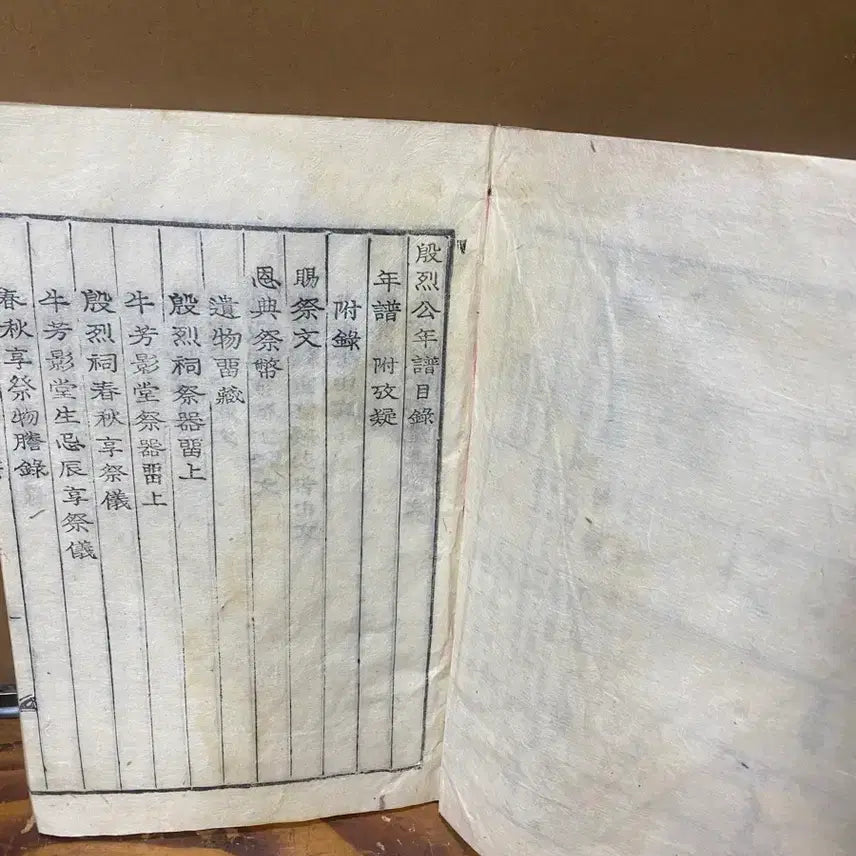 殷烈公年譜目錄
年譜 附攷疑
附錄
賜祭文
恩典祭幣
遺物畱藏
殷烈祠祭器畱上
牛芳影堂祭器畱上
殷烈祠春秋享祭儀
牛芳影堂生忌辰享祭儀
春秋享祭物謄錄